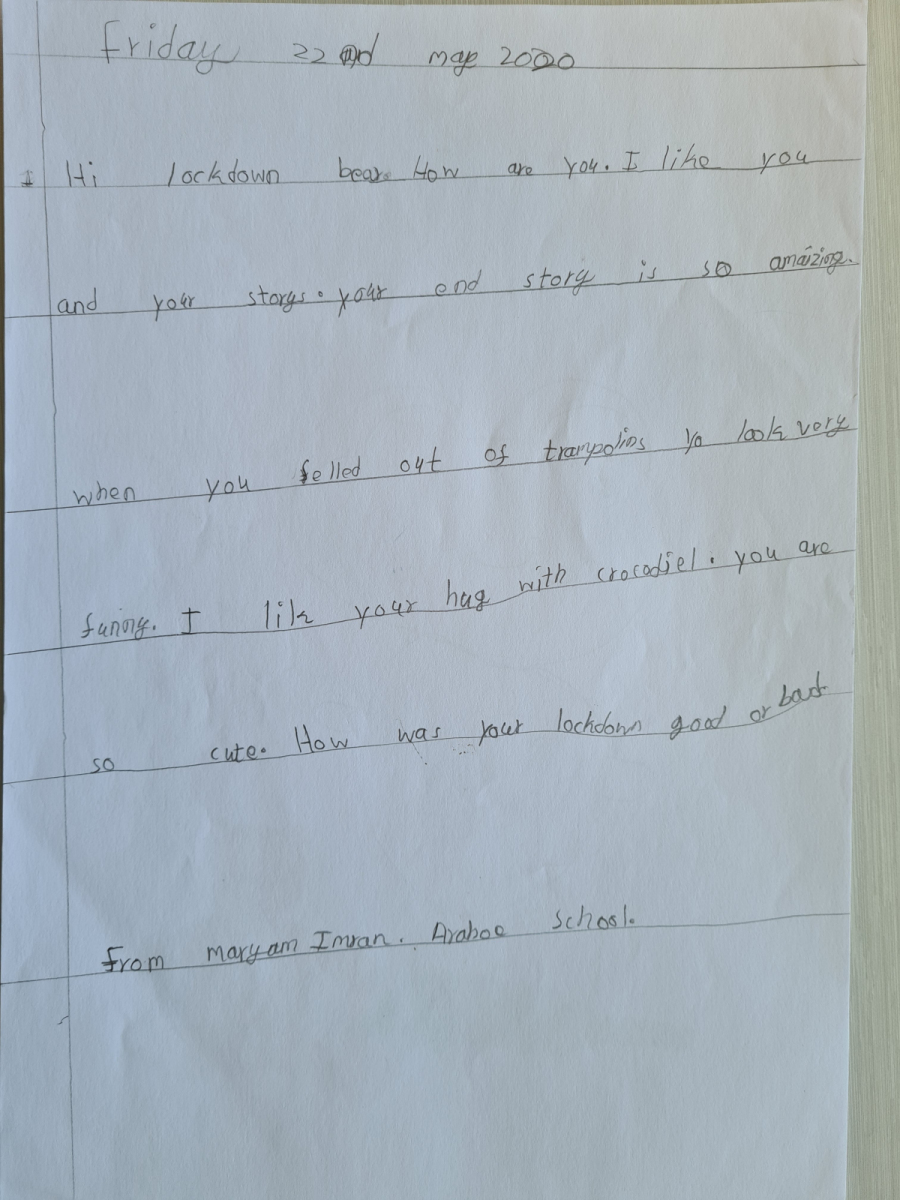 Friday 22nd may 2020
Hi lockdown bear. How are you. I like you
and your storys. your end story is so amaizing.
when you felled out of trampolins yo look very
funny. I lik your hug with crocodiel. you are
so cute. How was your lockdown good or bad
From maryam Imran. Araboo School.